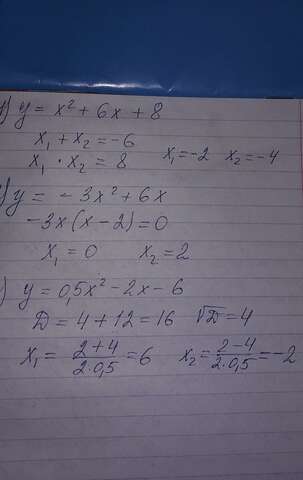 ) y = x² + 6x + 8
x₁ + x₂ = -6
x₁ · x₂ = 8 x₁ = -2 x₂ = -4
) y = - 3x² + 6x
-3x(x - 2) = 0
x₁ = 0 x₂ = 2
) y = 0,5x² - 2x - 6
D = 4 + 12 = 16 √D = 4
x₁ = (2 + 4)/(2·0,5) = 6 x₂ = (2 - 4)/(2·0,5) = -2